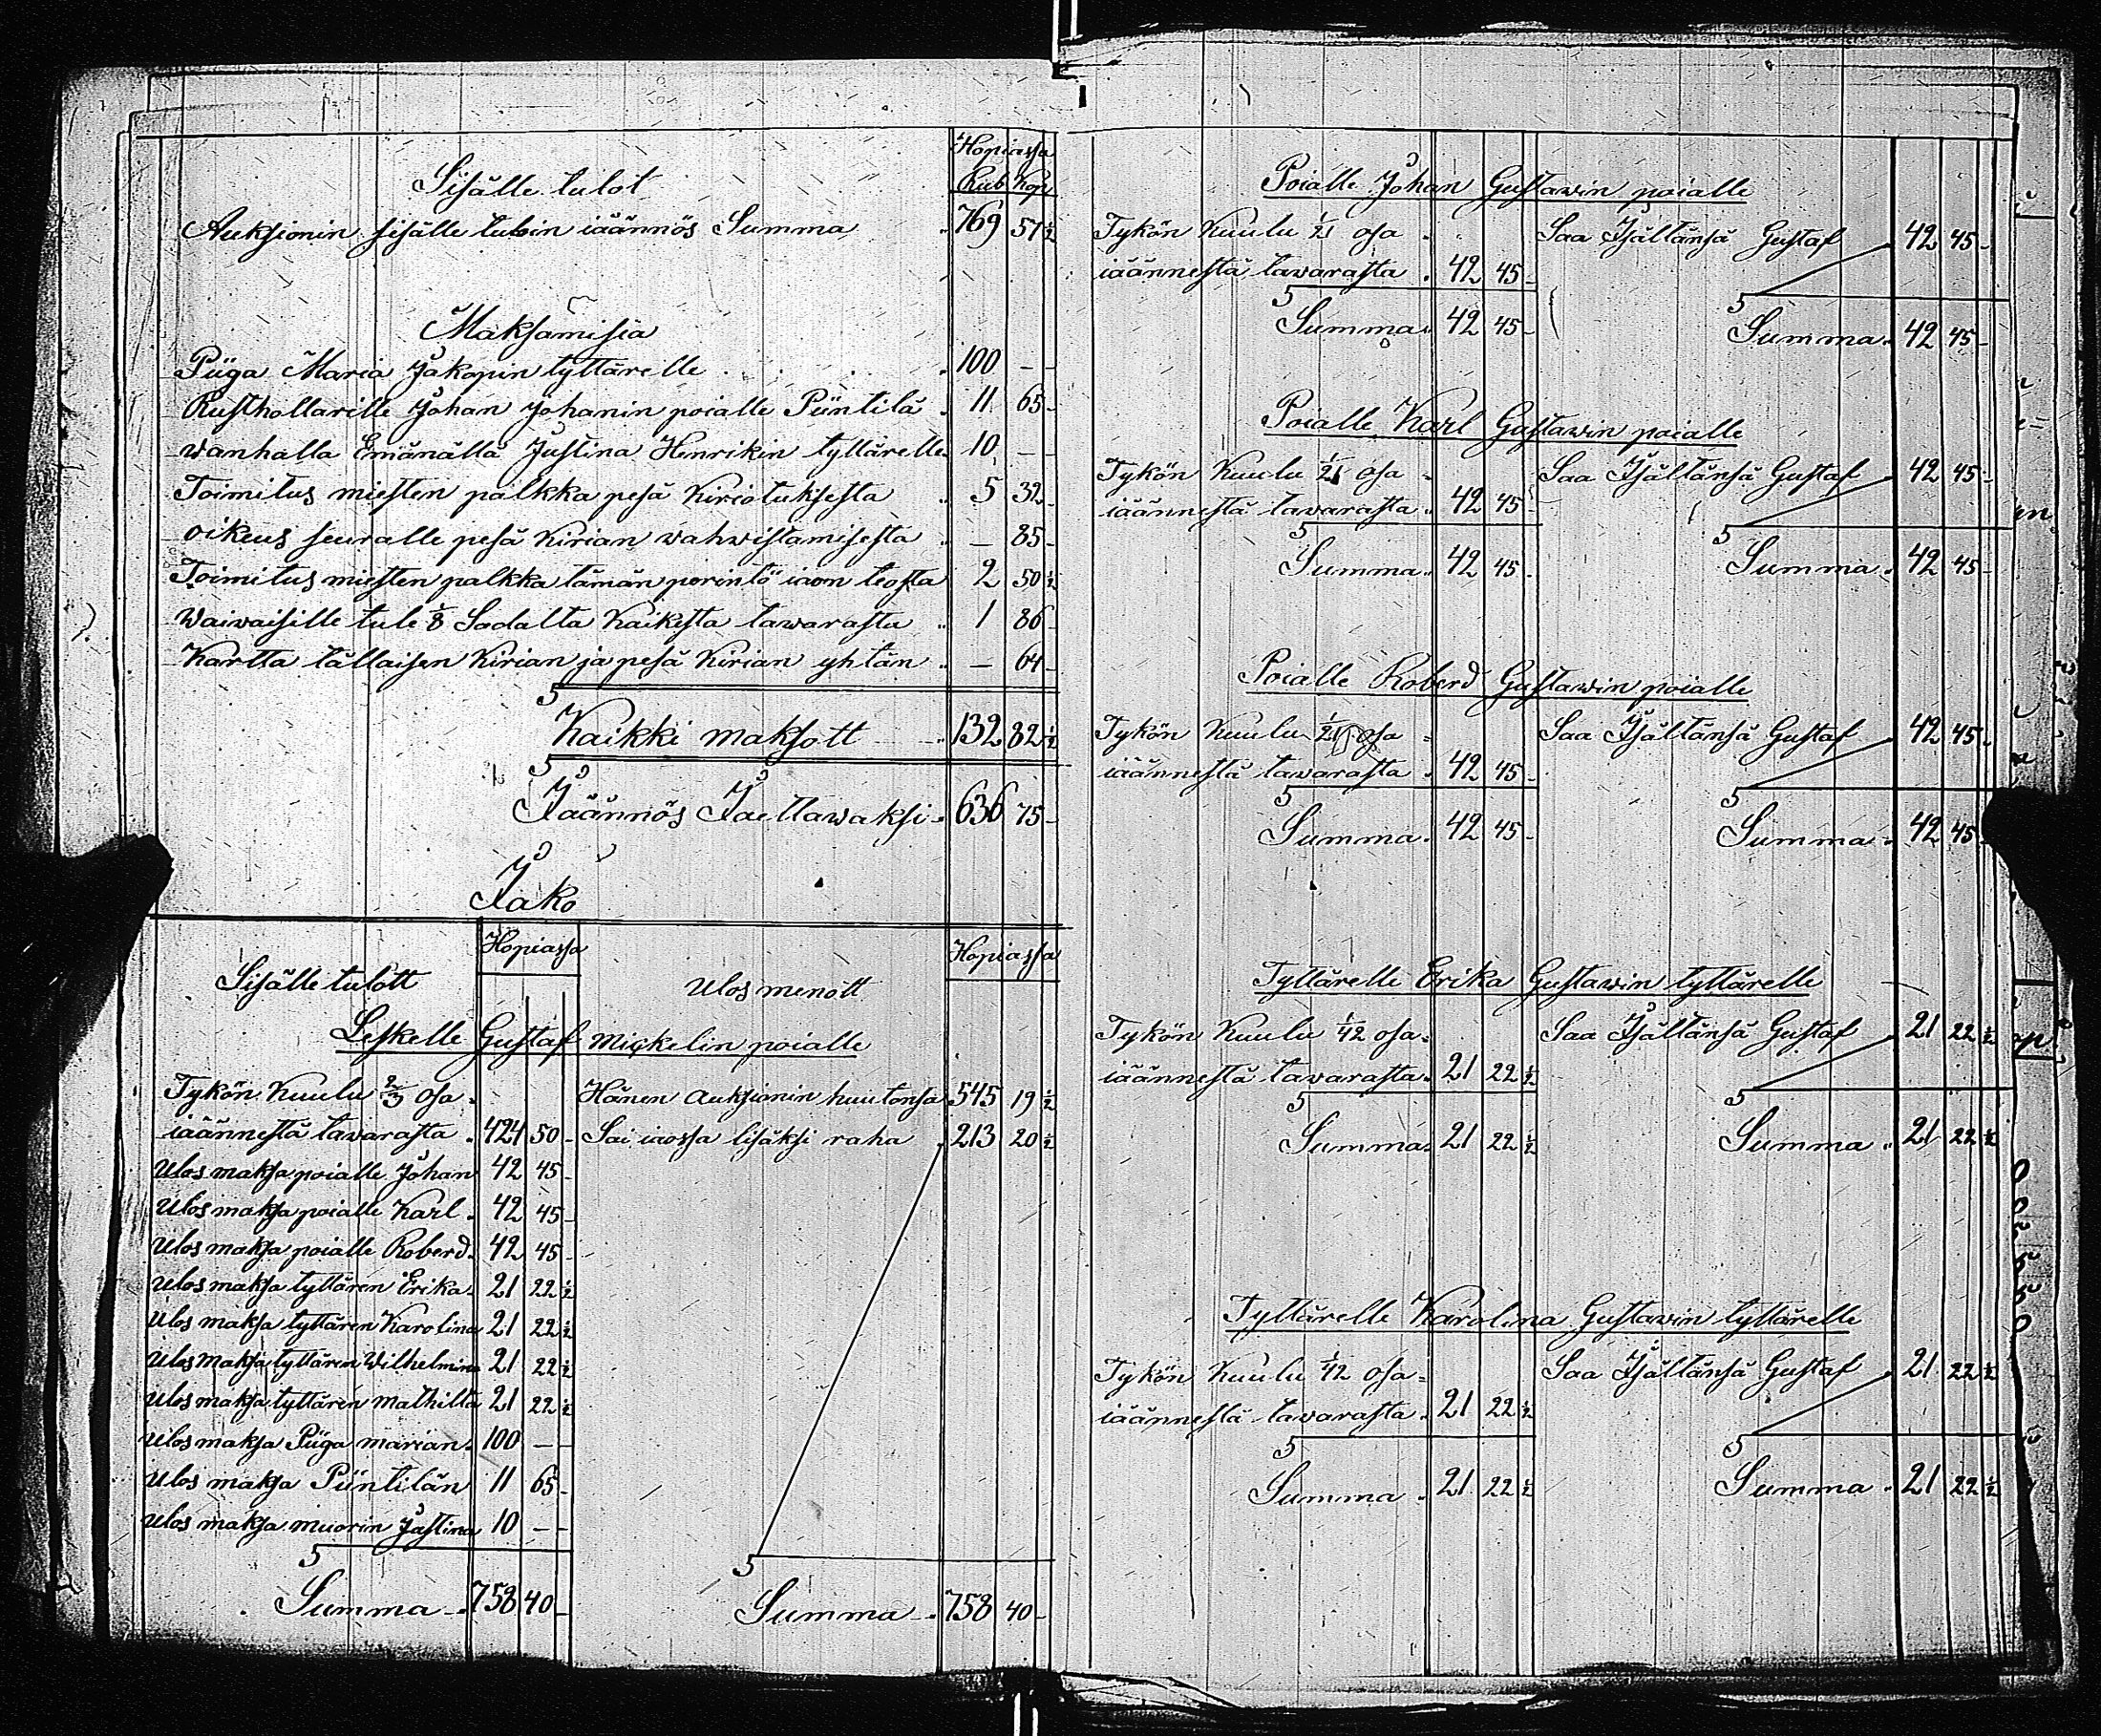 Hopiassa
Sisälle tulot Rub Kop
Auksionin sisälle tuloin iäännös Summa 769 57 ½
Maksamisia
Piiga Maria Jakopin tyttärelle 100 – –
Rusthollarille Johan Johanin poialle Piintilä 11 65 –
wanhalla Emänällä Justina Henrikin tyttärelle 10 – –
Toimitus miesten palkka pesä Kiriotuksesta 5 32 –
oikeus seuralle pesä Kirian wahwistamisesta – 85 –
Toimitus miesten palkka tämän perintö iaon teosta 2 50 ½
Waiwaisille tule 1/8 Sadalta Kaikesta tawarasta 1 86
Kartta tällaisen Kirian ja pesä Kirian yhtän – 64 –
Kaikki maksott 132 82 ½
Jäännös Jaettawaksi 636 75 –
Jako
Hopiassa Hopiassa
Sisälle tulott Ulos menott
Leskelle Gustaf Mickelin poialle
Tykön Kuulu 2/3 osa Hänen auksionin huutonsa 545 19 ½
iäännestä tawarasta 424 50 – Sai iaossa lisäksi raha 213 20 ½
Ulos maksa poialle Johan 42 45 –
Ulos maksa poialle Karl 42 45 –
Ulos maksa poialle Roberd 42 45 –
Ulos maksa tyttären Erika 21 22 ½
Ulos maksa tyttären Karolina 21 22 ½
Ulos maksa tyttären Wilhelmina 21 22 ½
Ulos maksa tyttären mathilta 21 22 ½
Ulos maksa Piiga marian 100 – –
Ulos maksa Piintilän 11 65 –
Ulos maksa muorin Justina 10 – –
Summa 758 40 – Summa 758 40 –
Poialle Johan Gustawin poialle
Tykön Kuulu 1/21 osa Saa Isältänsä Gustaf 42 45 –
iäännestä tawarasta 42 45 –
Summa 42 45 – Summa 42 45 –
Poialle Karl Gustawin poialle
Tykön Kuulu 1/21 osa Saa Isältänsä Gustaf 42 45 –
iäännestä tawarasta 42 45 –
Summa 42 45 – Summa 42 45 –
Poialle Roberd Gustawin poialle
Tykön Kuulu 1/21 osa Saa Isältänsä Gustaf 42 45 –
iäännestä tawarasta 42 45 –
Summa 42 45 – Summa 42 45
Tyttärelle Erika Gustawin tyttärelle
Tykön Kuulu 1/42 osa Saa Isältänsä Gustaf 21 22 ½
iäännestä tawarasta 21 22 ½
Summa 21 22 ½ Summa 21 22 ½
Tyttärelle Karolina Gustawin tyttärelle
Tykön Kuulu 1/42 osa Saa Isältänsä Gustaf 21 22 ½
iäännestä tawarasta 21 22 ½
Summa 21 22 ½ Summa 21 22 ½